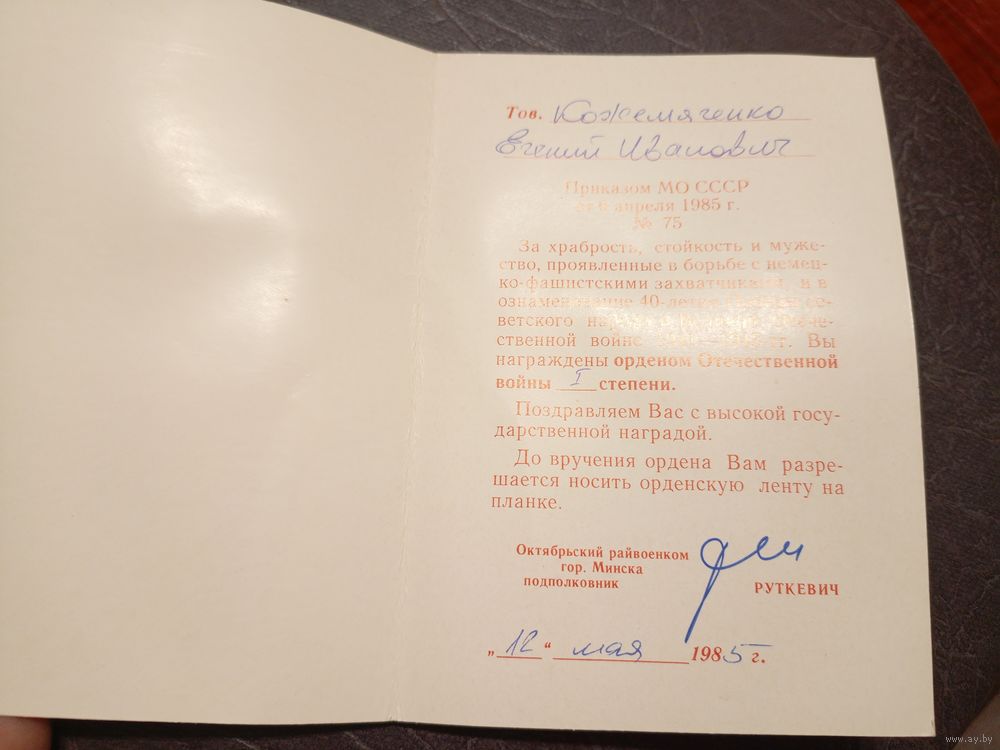 Тов. Кожемяченко
Евгений Иванович
Приказом МО СССР
от 6 апреля 1985 г.
№ 75
За храбрость, стойкость и муже-
ство, проявленные в борьбе с немец-
ко-фашистскими захватчиками, и в
ознаменование 40-летия Победы со-
ветского народа в Великой Отече-
ственной войне 1941—1945 гг. Вы
награждены орденом Отечественной
войны I степени.
Поздравляем Вас с высокой госу-
дарственной наградой.
До вручения ордена Вам разре-
шается носить орденскую ленту на
планке.
Октябрьский райвоенком
гор. Минска
подполковник
РУТКЕВИЧ
„12“ мая 1985 г.
www.ay.by